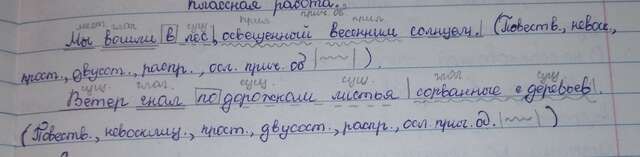 Классная работа.
мест. глаг. сущ. прил. прич. об. прил.
Мы вошли в лес, освещенный весенним солнцем. (Повеств., невоск.,
прост., двусост., распр., осл. прич. об |~~| ).
сущ. глаг. сущ. сущ. глаг. сущ.
Ветер гнал по дорожкам листья, сорванные с деревьев.
(Повеств., невосклиц., прост., двусост., распр., осл. прич. об. |~~| )